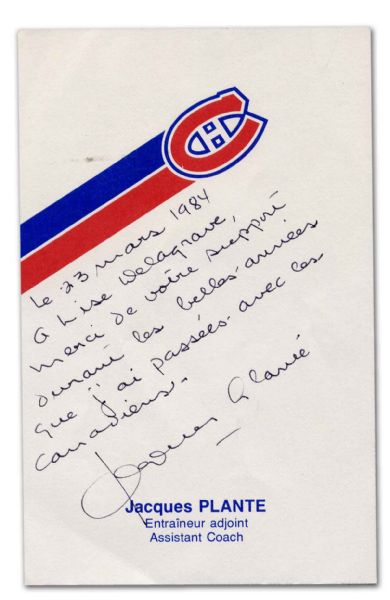 Le 23 mars 1984
A Lise Delagrave,
merci de votre support
durant les belles années
que j'ai passées avec les
Canadiens.
Jacques Plante
Jacques PLANTE
Entraîneur adjoint
Assistant Coach